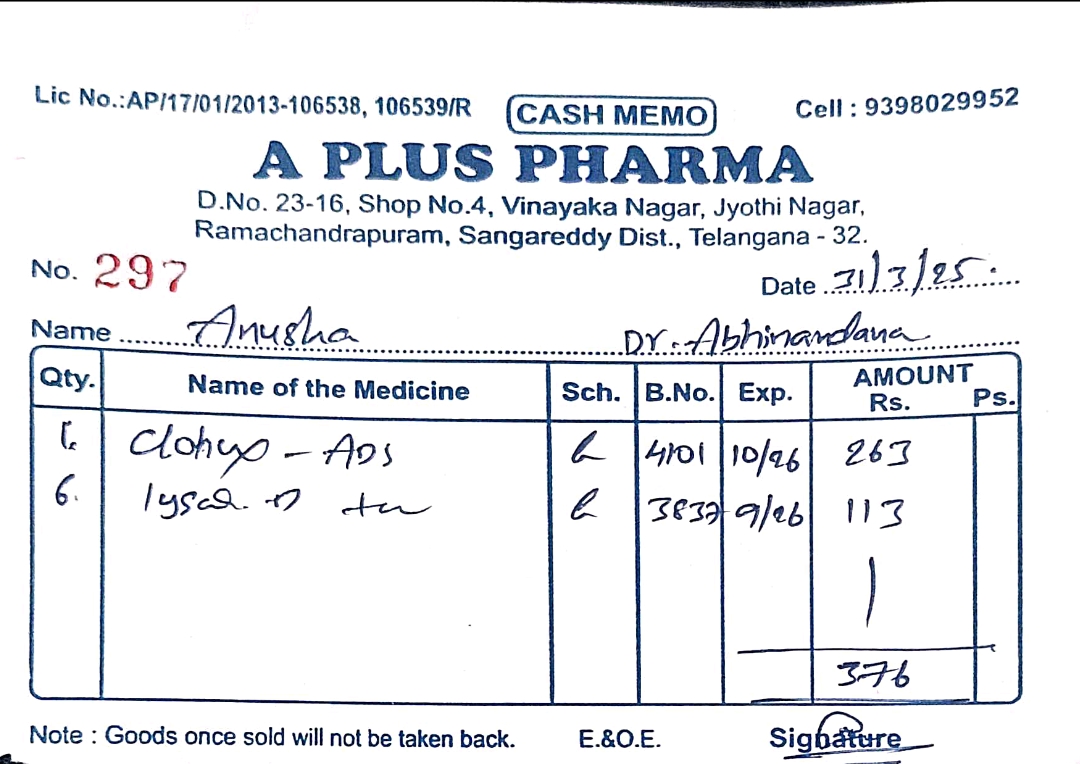 Lic No.:AP/17/01/2013-106538, 106539/R CASH MEMO Cell : 9398029952
A PLUS PHARMA
D.No. 23-16, Shop No.4, Vinayaka Nagar, Jyothi Nagar,
Ramachandrapuram, Sangareddy Dist., Telangana - 32.
No. 297 Date 31/3/25
Name Anusha Dr. Abhinandana
Qty. Name of the Medicine Sch. B.No. Exp. AMOUNT Rs. Ps.
4101 10/26 263
6. 3837 9/26 113
376
Note : Goods once sold will not be taken back. E.&O.E. Signature